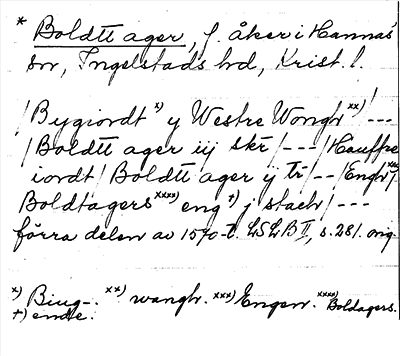 * Boldtt ager, f. åker i Hannas
sn, Ingelstads hd, Krist. l.
/Bygiordt x) y Westre Wongh xx)/---
/Boldtt ager iij skr/---/Hauffre
iordt/Boldtt ager ij tr/--/Enghr xxx)/
Boldtagers xxxx) eng +) j stach/---
förra delen av 1570-t. LSLB II, s. 281. orig.
x) Biug-. xx) wangh. xxx) Engen. xxxx) Boldagers.
+) endte.